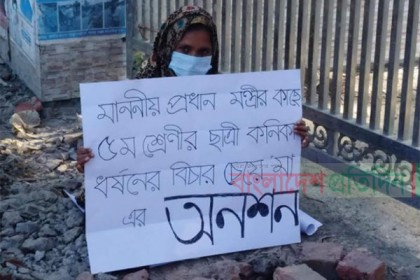 মাননীয় প্রধান মন্ত্রীর কাছে
৫ম শ্রেণীর ছাত্রী কনিকা
ধর্ষনের বিচার চেয়ে মা
এর অনশন
বাংলাদেশ প্রতিদিন